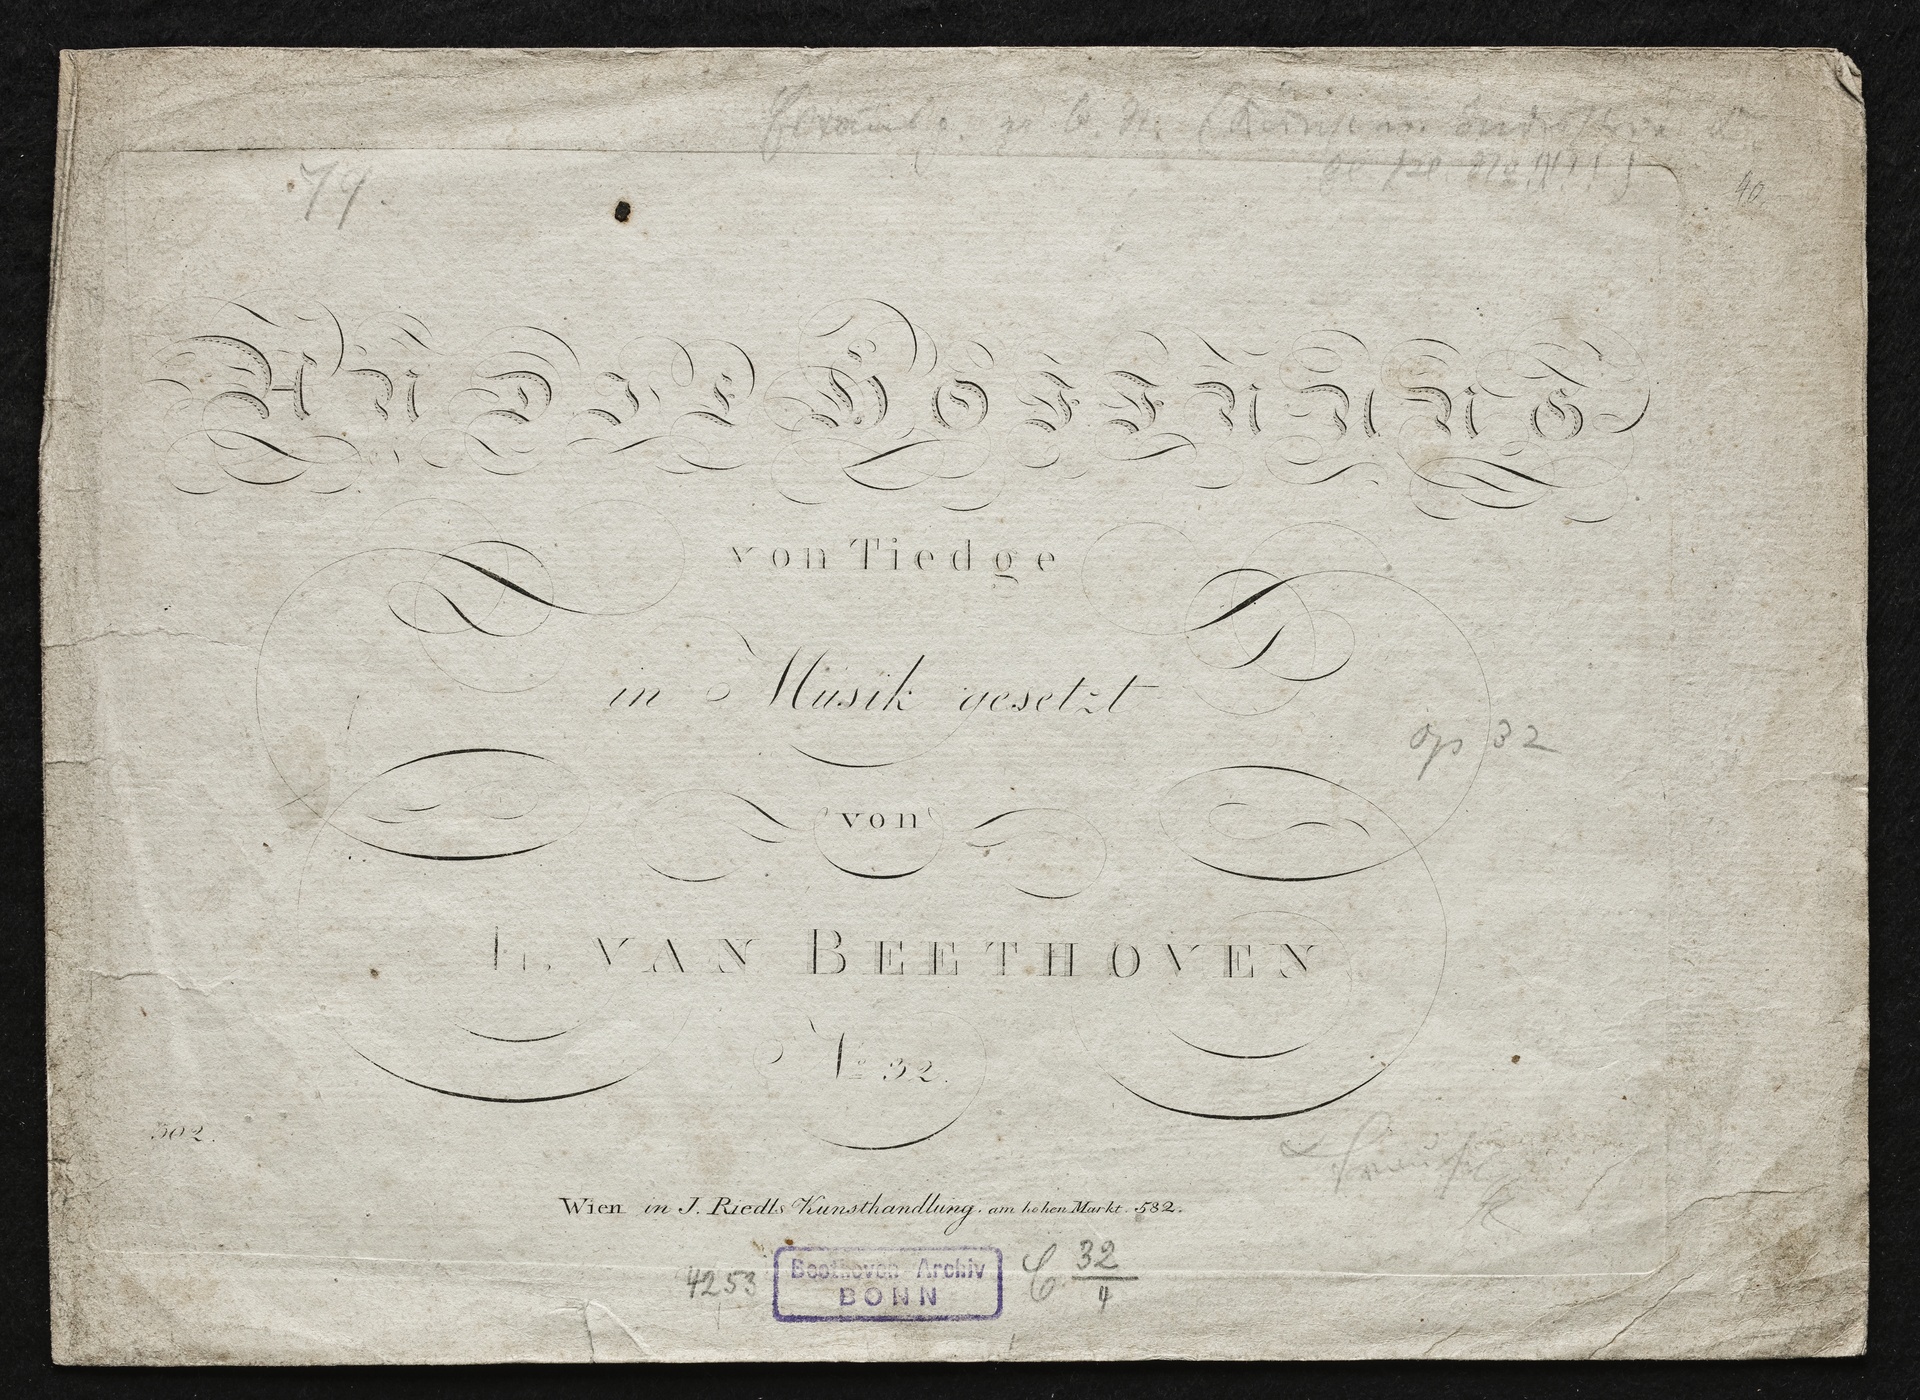 79.
40
AN DIE HOFFNUNG
von Tiedge
in Müsik gesetzt
op 32
von
L. VAN BEETHOVEN
No 32.
502.
Wien in J. Riedls Kunsthandlung. am hohen Markt. 582.
4253
Beethoven Archiv
BONN
C 32/4